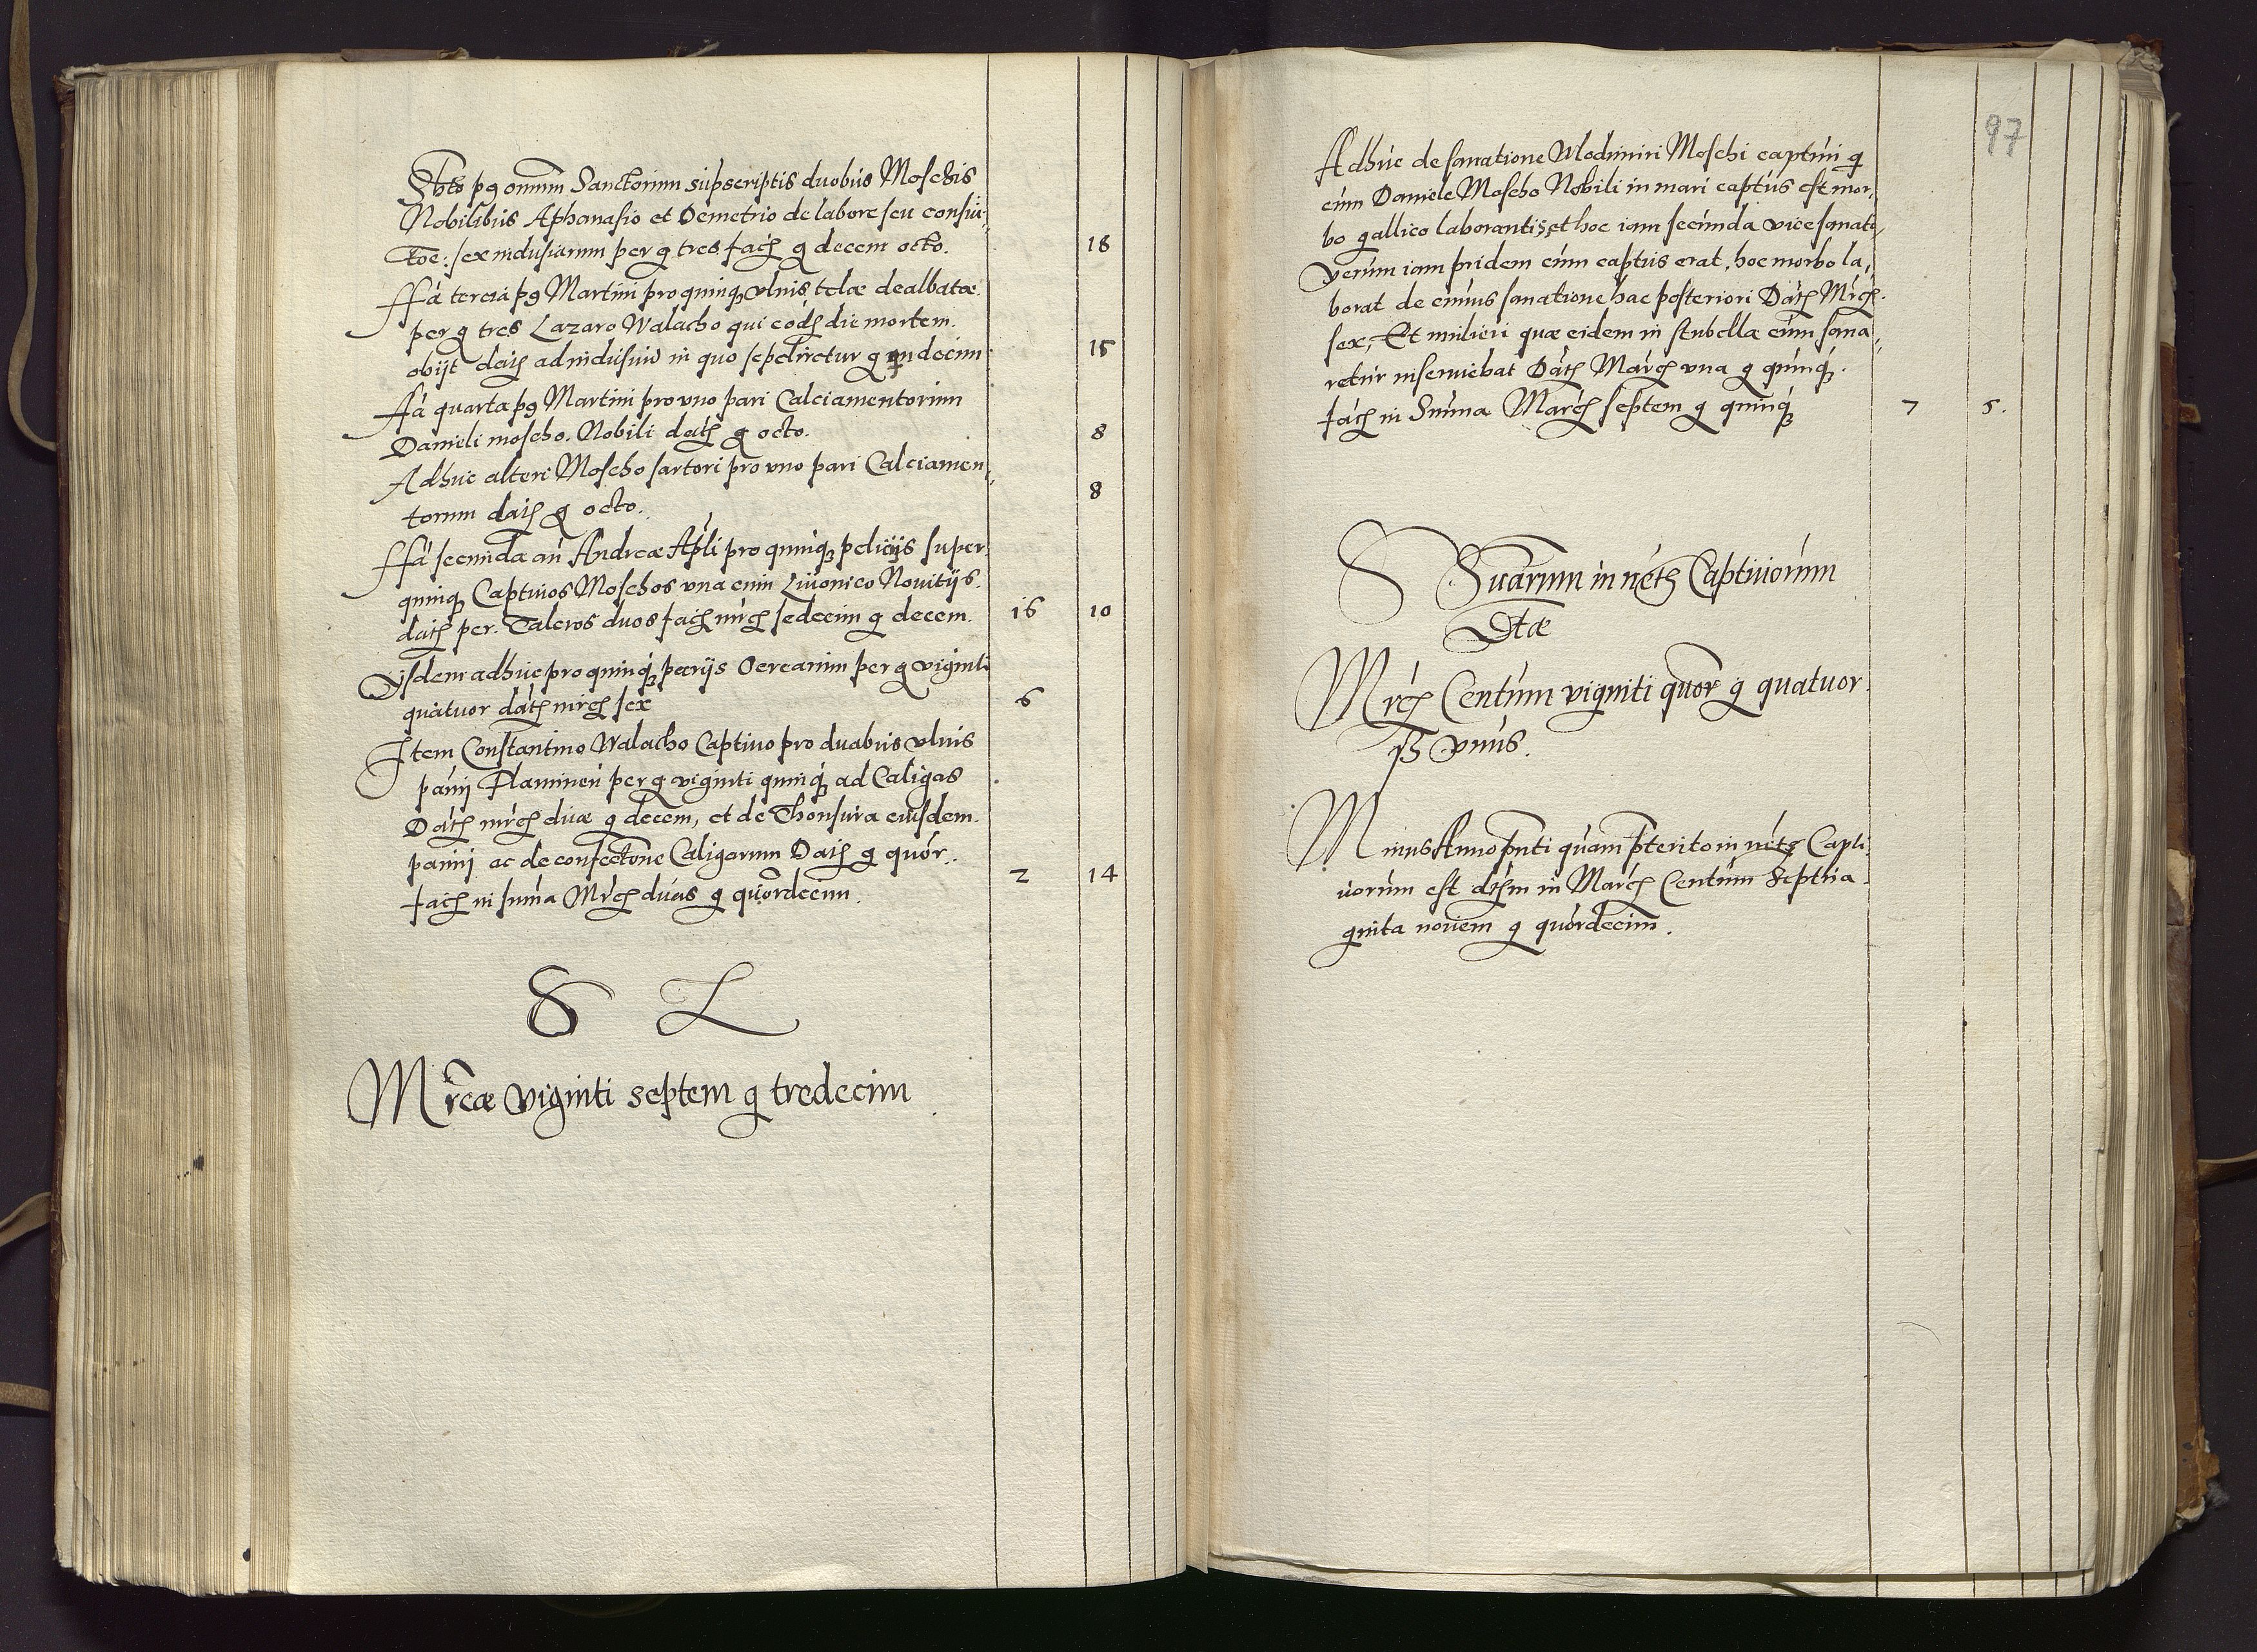 Sbto pꝰ omnm Sanctorum supscriptis duobus Moschis
Nobilibus Aphanasio et Demetrio de labore seu consu-
toe: sex indusiarum per g tres facꝭ g decem octo. 18
ffa tercia pꝰ Martini pro quinqꝫ vlnis telæ dealbatæ
per g tres Lazaro Walacho qui eodꝫ die mortem
obijt datꝭ ad indusiũ in quo sepeliretur g qndecim 15
ffa quarta pꝰ Martini pro vno pari Calciamentorum
Danieli moscho. Nobili datꝭ g octo. 8
Adhuc alteri Moscho sartori pro vno pari Calciamen,
torum datꝭ g octo. 8
ffa secunda an Andreæ Apli pro quinqꝫ pelicijs super
quinqꝫ Captiuos Moschos vna cum Liuonico Nouitijs
datꝭ per. Taleros duos facꝭ mrcꝭ sedecim g decem. 16 10
Ijsdem adhuc pro quinqꝫ parijs Ocrearum per g viginti
quatuor datꝭ mrcꝭ sex 6
Item Constantino Walacho Captiuo pro duabus vlnis
panij Flamineu per g viginti quinqꝫ ad Caligas
Datꝭ mrcꝭ duæ g decem, et de Thonsura eiusdem
panij ac de confectone Caligarum Datꝭ g quor.
facꝭ in suma Mrcꝭ duas g quordecim. 2 14
S L
Mrcæ viginti septem g tredecim
97
Adhuc de sanatione Wlodimiri Moschi captiui q
cum Daniele Moscho Nobili in mari captus est mor,
bo gallico laborantis, et hoc iam secunda vice sanati,
verum iam pridem cum captus erat, hoc morbo la,
borat de cuius sanatione hac posteriori Datꝭ Mrcꝭ
sex, Et mulieri quæ eidem in stubella cum sana,
retur inseruiebat Datꝭ Marcꝭ vna g quinqꝫ.
facꝭ in Suma Marcꝭ septem g quinqꝫ 7 5.
S Suarum in nctꝭ Captiuorum
Dtæ
Mrcꝭ Centum viginti quor g quatuor
ß vnus.
Minus Anno pnti quam pterito in nctꝭ Capti,
uorum est dtꝭm in Marcꝭ Centum Septua,
ginta nouem g quordecim.